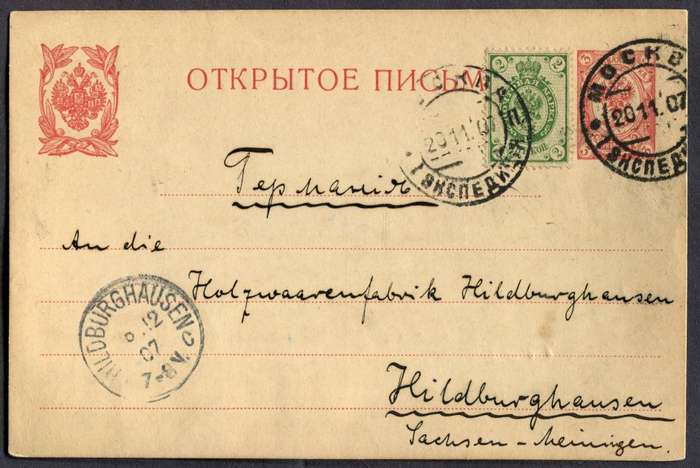 ОТКРЫТОЕ ПИСЬМО
МОСКВА
20 11. 07
I ЭКСПЕДИЦІЯ
2
2
КОП
МОСКВА
20 11. 07
I ЭКСПЕДИЦІЯ
3
3
Германія
An die
Holzwaarenfabrik Hildburghausen
HILDBURGHAUSEN
12
07
7-8V.
Hildburghausen
Sachsen-Meiningen.